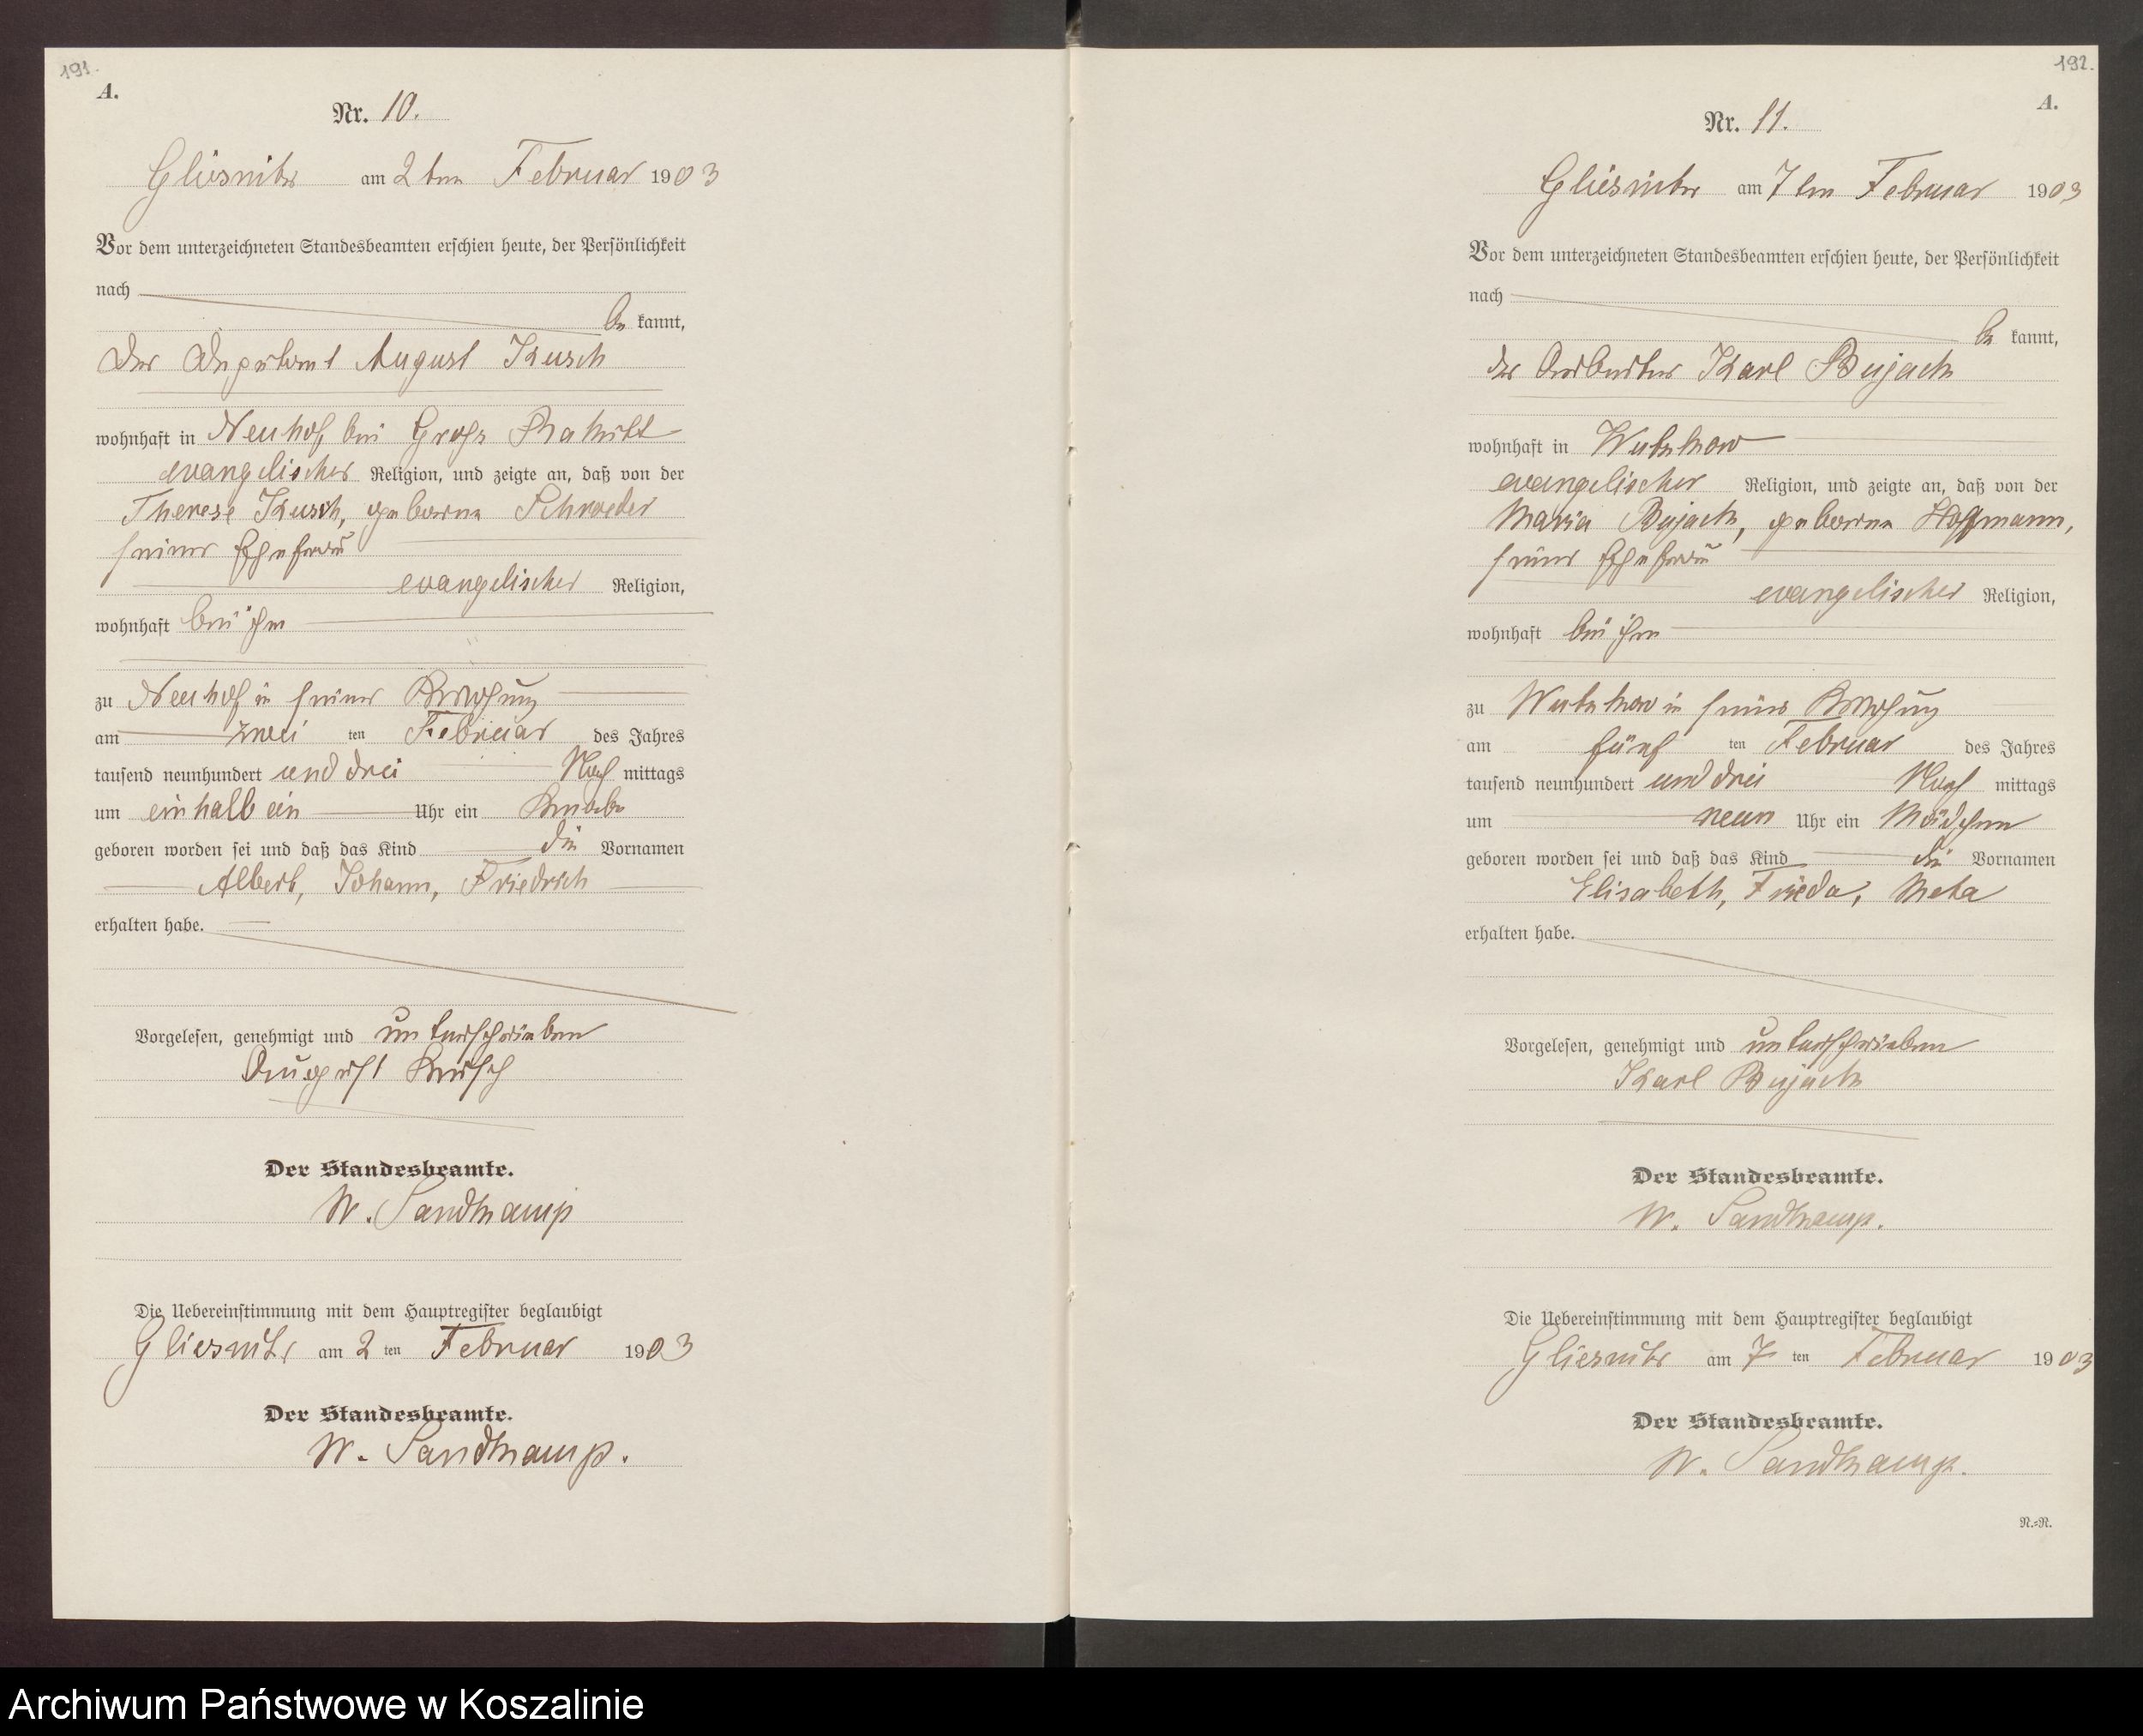 191.
A.
Nr. 10.
Gliesnitz am 2ten Februar 1903
Vor dem unterzeichneten Standesbeamten erschien heute, der Persönlichkeit
nach
be kannt,
der Deputant August Kusch
wohnhaft in Neuhof bei Gross Rakitt
evangelischer Religion, und zeigte an, daß von der
Therese Kusch, geborene Schroeder
seiner Ehefrau
evangelischer Religion,
wohnhaft bei ihm
zu Neuhof in seiner Wohnung
am zwei ten Februar des Jahres
tausend neunhundert und drei Nach mittags
um einhalb ein Uhr ein Knabe
geboren worden sei und daß das Kind die Vornamen
Albert, Johann, Friedrich
erhalten habe.
Vorgelesen, genehmigt und unterschrieben
August Kusch
Der Standesbeamte.
W. Sandkamp
Die Uebereinstimmung mit dem Hauptregister beglaubigt
Gliesnitz am 2 ten Februar 1903
Der Standesbeamte.
W. Sandkamp.
192.
A.
Nr. 11.
Gliesnitz am 7ten Februar 1903
Vor dem unterzeichneten Standesbeamten erschien heute, der Persönlichkeit
nach
be kannt,
der Arbeiter Karl Bujack
wohnhaft in Wutzkow
evangelischer Religion, und zeigte an, daß von der
Maria Bujack, geborene Hoffmann,
seiner Ehefrau
evangelischer Religion,
wohnhaft bei ihm
zu Wutzkow in seiner Wohnung
am fünf ten Februar des Jahres
tausend neunhundert und drei Nach mittags
um neun Uhr ein Mädchen
geboren worden sei und daß das Kind die Vornamen
Elisabeth, Frieda, Meta
erhalten habe.
Vorgelesen, genehmigt und unterschrieben
Karl Bujack
Der Standesbeamte.
W. Sandkamp.
Die Uebereinstimmung mit dem Hauptregister beglaubigt
Gliesnitz am 7 ten Februar 1903
Der Standesbeamte.
W. Sandkamp.
N.=N.
Archiwum Państwowe w Koszalinie